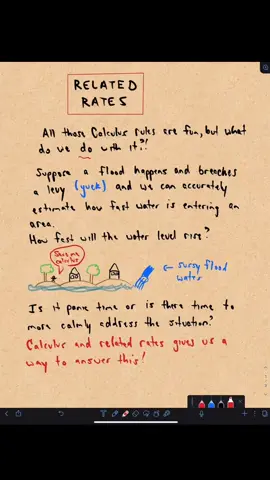 RELATED
RATES
All those Calculus rules are fun, but what
do we do with it?!
Suppose a flood happens and breaches
a levy (yuck) and we can accurately
estimate how fast water is entering an
area.
How fast will the water level rise?
Save me
calculus
← sussy flood
water
Is it panic time or is there time to
more calmly address the situation?
Calculus and related rates gives us a
way to answer this!